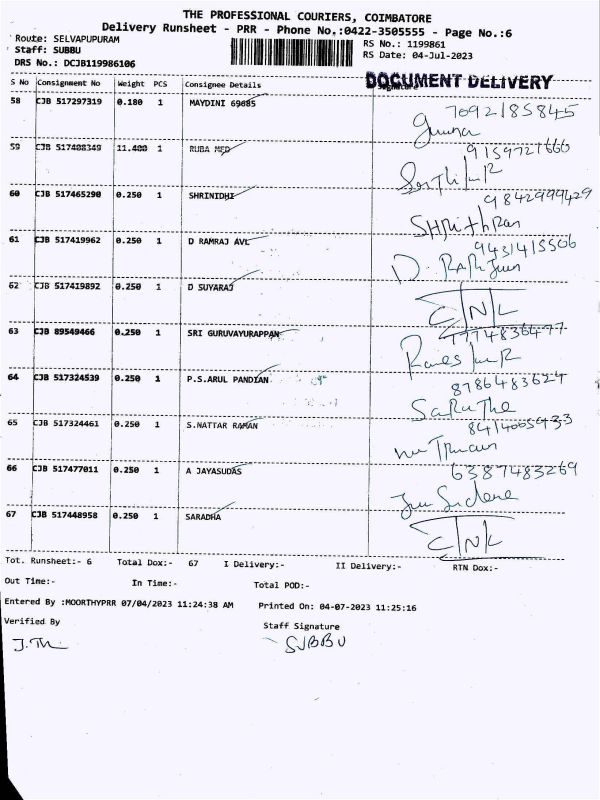 THE PROFESSIONAL COURIERS, COIMBATORE
Delivery Runsheet - PRR - Phone No.:0422-3505555 - Page No.:6
Route: SELVAPUPURAM
RS No.: 1199861
Staff: SUBBU
RS Date: 04-Jul-2023
DRS No.: DCJB119986106
DOCUMENT DELIVERY
S No Consignment No Weight PCS Consignee Details Signature
58 CJB 517297319 0.180 1 MAYDINI 69685 7092185845
59 CJB 517408349 11.400 1 RUBA MED 9159721666
60 CJB 517465290 0.250 1 SHRINIDHI 9842999429
SHRithRan
61 CJB 517419962 0.250 1 D RAMRAJ AVL 9431415506
62 CJB 517419892 0.250 1 D SUYARAJ C/N/L
63 CJB 89549466 0.250 1 SRI GURUVAYURAPPAN 7774836477
64 CJB 517324539 0.250 1 P.S.ARUL PANDIAN 8786483624
65 CJB 517324461 0.250 1 S.NATTAR RAMAN
66 CJB 517477011 0.250 1 A JAYASUDAS 6387483269
67 CJB 517448958 0.250 1 SARADHA C/N/L
Tot. Runsheet:- 6 Total Dox:- 67 I Delivery:- II Delivery:- RTN Dox:-
Out Time:- In Time:- Total POD:-
Entered By :MOORTHYPRR 07/04/2023 11:24:38 AM Printed On: 04-07-2023 11:25:16
Verified By Staff Signature
SUBBU